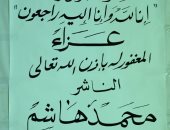 "إنا لله وإنا إليه راجعون"
عزاء
المغفور له بإذن الله تعالى
الناشر
محمد هاشم